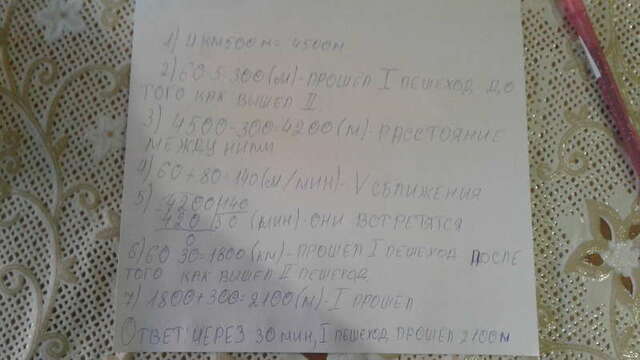 1) 4 км 500 м = 4500 м
2) 60·5=300(м)-прошёл I пешеход до
того как вышел II
3) 4500-300=4200(м)-расстояние
между ними
4) 60+80=140(м/мин)-V сближения
5) 4200|140
420 |30 (мин)-они встретятся
0
6) 60·30=1800(км)-прошёл I пешеход после
того как вышел II пешеход
7) 1800+300=2100(м)-I прошёл
Ответ: через 30 мин, I пешеход прошёл 2100м